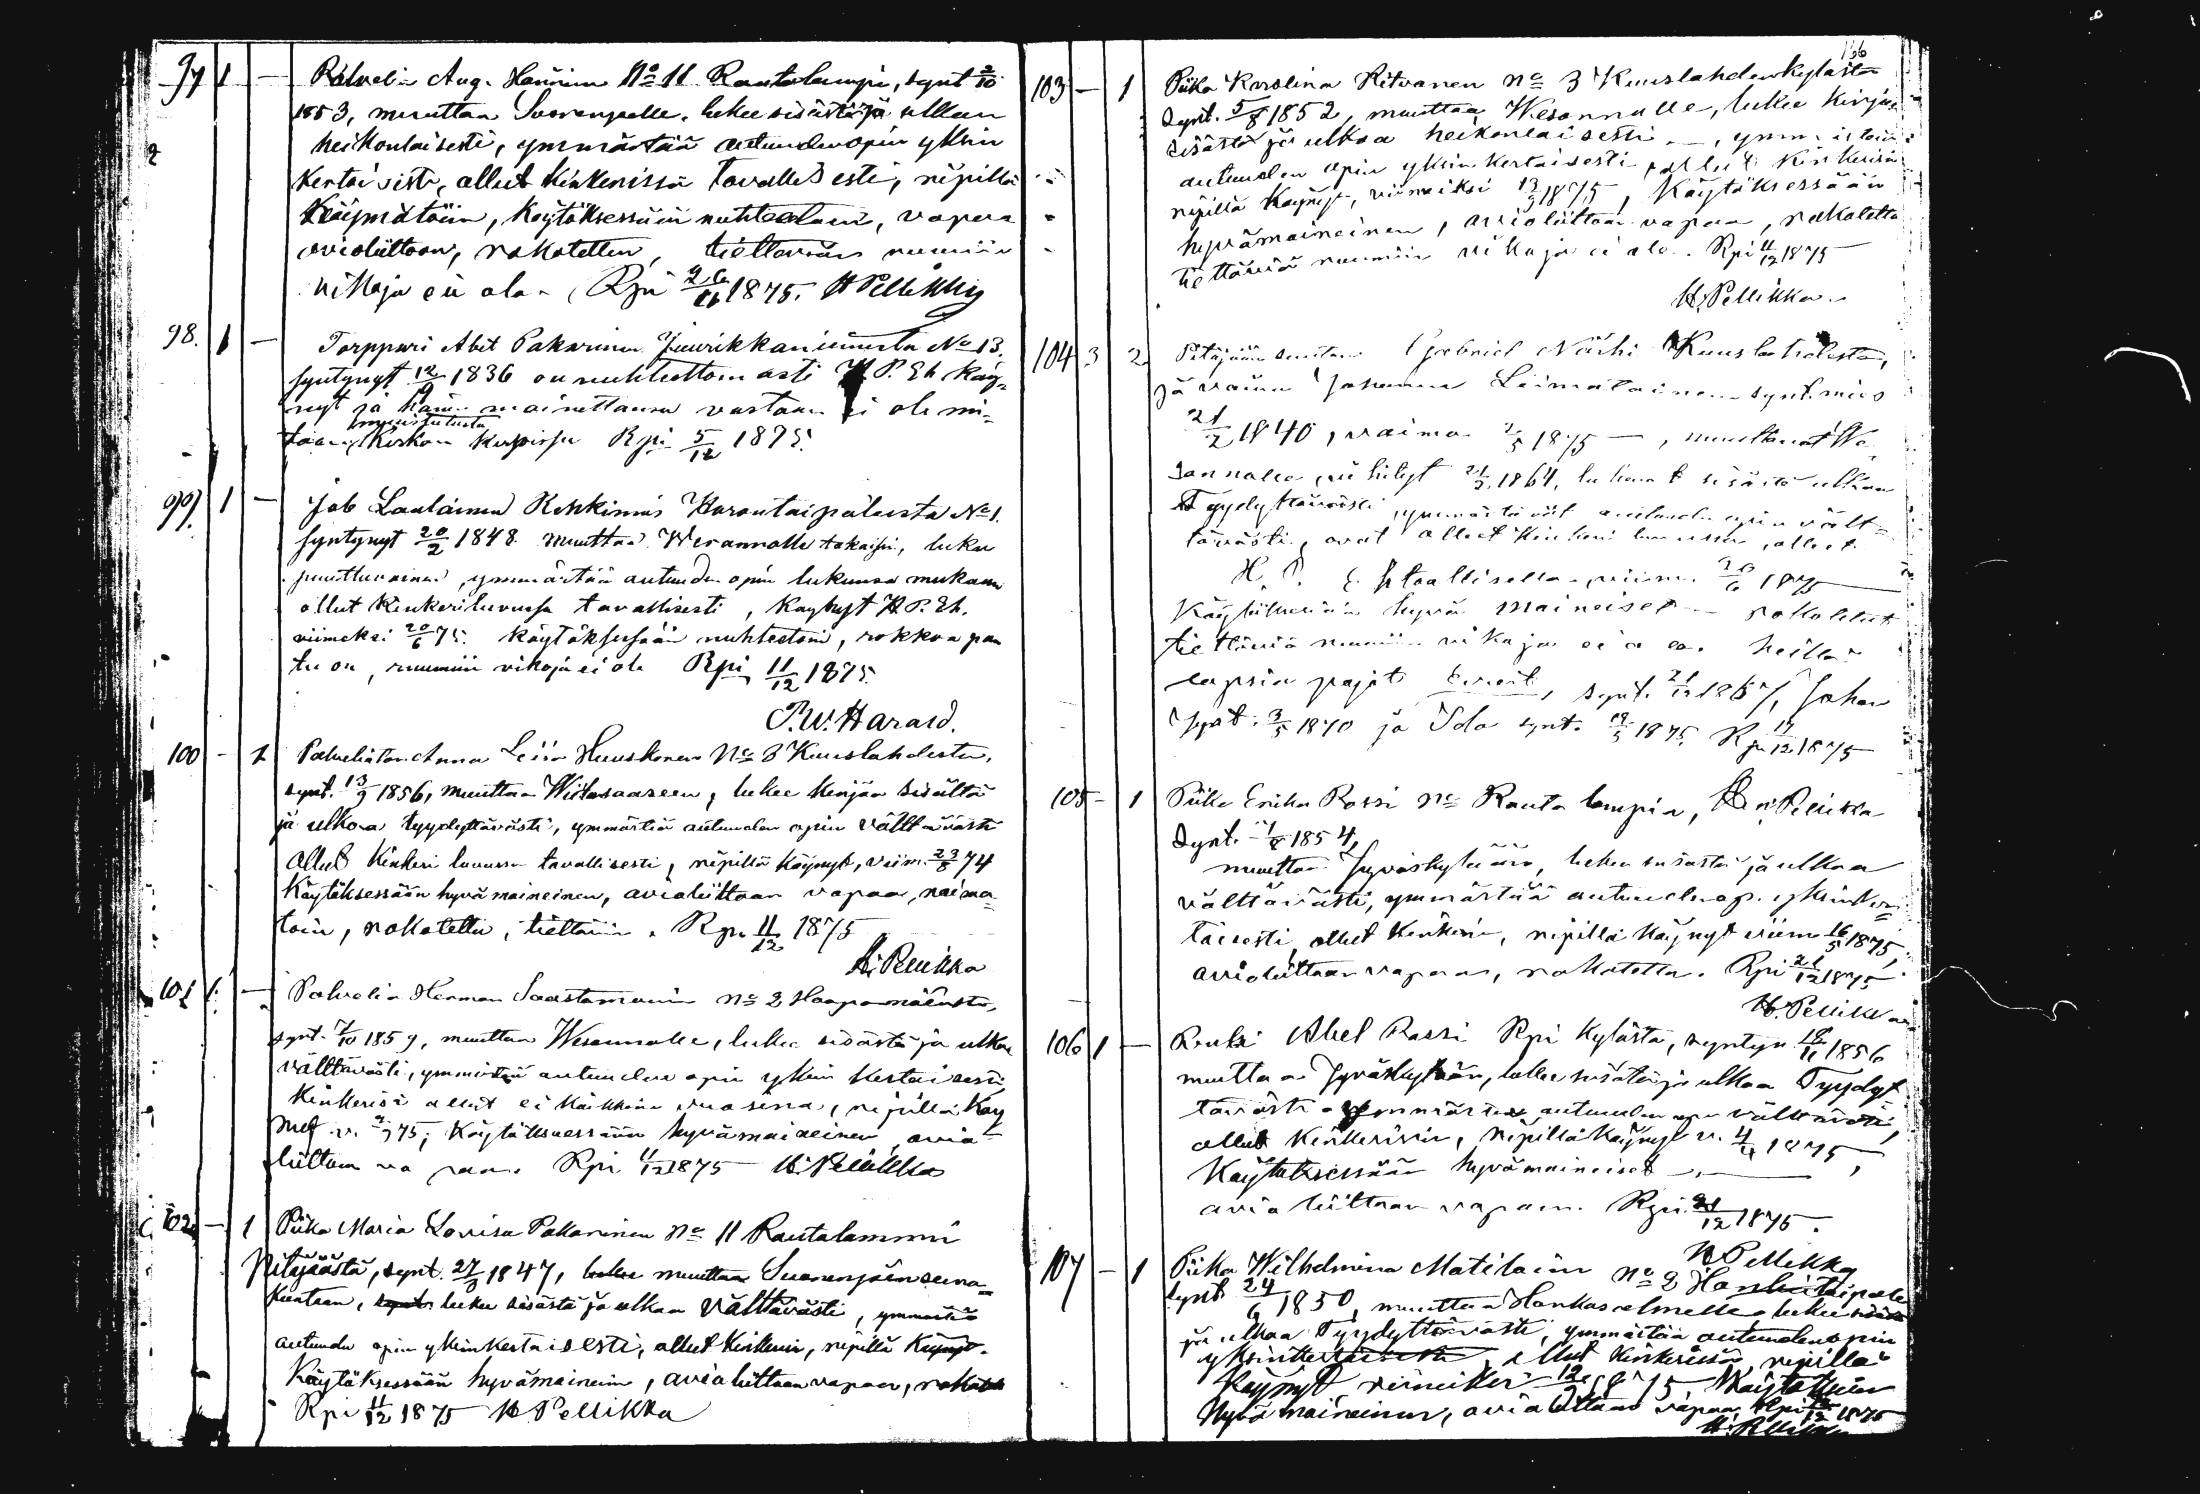 97 1 — Palvelia Aug. Hänninen No 11 Rautalampi, synt 2/10
1853, muuttaa Suonenjoelle, lukee sisästä ja ulkaa
heikonlaisesti, ymmärtää autuudenopin yksin
kertaisesti, ollut kinkerissä tavallisesti, ripillä
käymätöin, käytöksessään nuhteetoin, vapaa
avioliittoon, rokotettu, tiettäviä ruumiin
vikoja ei ole. Rpi 26/11 1875. H Pellikka
98. 1 — Torppari Abel Pakarinen No 13.
syntynyt 12/9 1836 on nuhteettomasti H. P. Eh. käy-
nyt ja mainettansa vastaan ei ole mi-
tään muistutusta Kirkon kirjoissa Rpi 5/12 1875.
99. 1 — Job Laulainen No 1.
syntynyt 20/2 1848 muuttaa Wesannolle takaisin, luku
puuttuvainen, ymmärtää autuuden opin lukunsa mukaan
ollut kinkeriluvussa tavallisesti, käynyt H. P. Eh.
viimeksi 20/6 75. käytöksessään nuhteetoin, rokkoa pan
tu on, ruumiin vikoja ei ole Rpi 11/12 1875.
P. W. Harald.
100 — 1 Palvelia Anna Liisa Huuskonen No 3 Kuuslahdesta,
synt. 13/9 1856, muuttaa Wiitasaareen, lukee kirjaa sisältä
ja ulkoa tyydyttävästi, ymmärtää autuuden opin välttävästi
ollut kinkeri luvussa tavallisesti, ripillä käynyt, viim. 23/8 74
käytöksessään hyvämaineinen, avioliittoon vapaa, naima-
toin, rokotettu, tiettäviä. Rpi 11/12 1875
H. Pellikka
101 1. — Palvelia Herman Saastamoinen No 2 Haapamäestä,
synt. 7/10 1859, muuttaa Wesannolle, lukee sisästä ja ulkoa
välttävästi, ymmärtää autuuden opin yksin kertaisesti
Kinkerisä ollut ei kaikkina vuosina, ripillä käy
nyt v. 75, käytöksessään hyvämaineinen, avio-
liittoon vapaa. Rpi 11/12 1875 H. Pellikka
102. — 1 Piika Maria Lovisa Pakarinen No 11 Rautalammin
Pitäjäästä, synt. 27/3 1847, lukee muuttaa Suonenjoen seura-
kuntaan, synt. lukee sisästä ja ulkaa välttävästi, ymmärtää
autuuden opin yksinkertaisesti, ollut kinkerin, ripillä käynyt.
Käytöksessään hyvämainein, avioliittoon vapaa, rokotettu
Rpi 11/12 1875 H Pellikka
136
103 — 1 Piika Karolina Ritvanen No 3 Kuuslahdenkylästä
synt. 5/8 1852, muuttaa Wesannolle, lukee kirjaa
sisästä ja ulkoa heikonlaisesti —, ymmärtää
autuuden opin yksinkertaisesti, ollut kinkerisä
ripillä käynyt, viimeiksi 1875, Käytöksessään
hyvämaineinen, avioliittoon vapaa, rokotettu
tiettäviä ruumiin vikoja ei ole. Rpi 11/12 1875
H. Pellikka.
104 3 2 Pitäjään suutari Gabriel Närhi Kuuslahdesta,
ja vaimo Johanna Leimalainen synt. mies
21/2 1840, vaimo 1875 —, muuttavat We
sannolle, vihityt 1864, lukevat sisästä ulkoa
Tyydyttäväisti, ymmärtävät autuuden opin vält-
tävästi, ovat olleet kinkeri luvussa, olleet
H. P. Ehtoollisella, viim. 20/6 1875
Käytöksessään hyvä maineiset — rokotetut
tiettäviä ruumiin vikoja ei ole. heillä
lapsia pojat, synt. 21/12 1867, Johan
synt. 3/5 1870 ja Ida synt. 1875. Rpi 17/12 1875
105 — 1 Piika Erika Rossi No Rautalampia, H. Pellikka
synt. 1854,
muuttaa Jyväskylään, lukee sisästä ja ulkoa
välttävästi, ymmärtää autuudenop. yksinker-
taisesti, ollut kinkerin, ripillä käynyt viim 16/5 1875,
avioliittoon vapaa, rokotettu. Rpi 21/12 1875
H. Pellikka
106 1 — Renki Abel Rossi Rpi kylästä, syntyn 18/11 1856
muuttaa Jyväskylään, lukee sisästä ja ulkoa Tyydyt
tävästi ymmärtää autuuden opin välttävästi,
ollut kinkerisin, ripillä käynyt v. 4/4 1875,
Käytöksessään hyvämaineiset —,
avioliittoon vapaa. Rpi 21/12 1875.
H Pellikka
107 — 1 Piika Wilhelmina Matilain No 2
synt 24/6 1850, muuttaa Hankasalmelle lukee sisästä
ja ulkoa Tyydyttävästi, ymmärtää autuudenopin
yksinkertaisesti, ollut kinkerissä, ripillä
käynyt viimeiksi 12/9 1875 käytöksen
hyvämaineinen, avioliittoon vapaa, Rpi 1875
H. Pellikka